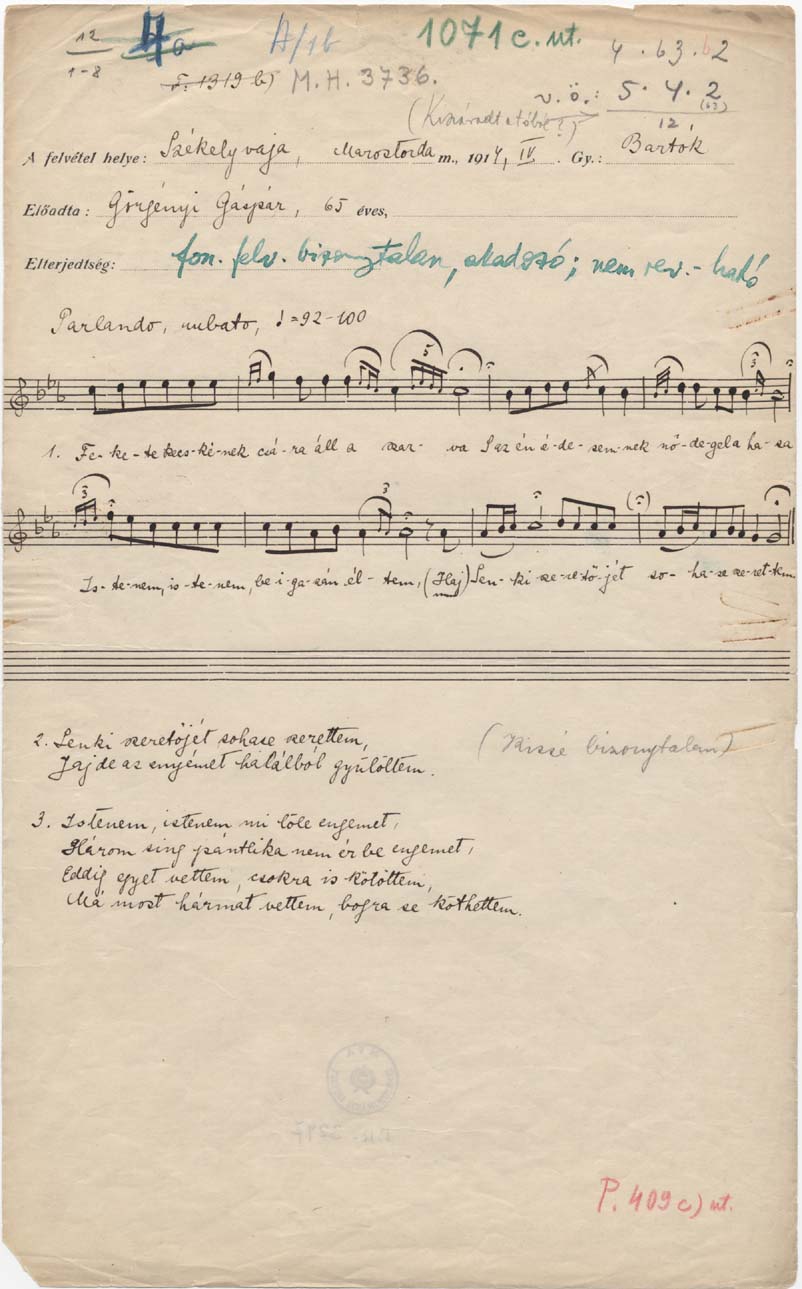 12
1-8
4a
A/1b
1071 c. ut.
4. 63. b2
F. 1319 b)
M.H. 3736.
v. ö.: 5. 4. 2
(b2)
12,
A felvétel helye: Székelyvaja, Marostorda m., 1914, IV. Gy.: Bartók
Előadta: Görgényi Gáspár, 65 éves,
Elterjedtség: fon. felv. bizonytalan, akadozó; nem rev.-ható
Parlando, rubato, ♩=92-100
5
3
1. Fe-ke-te kecs-ké-nek csá-ra áll a szar-va S az én é-de-sem-nek nö-degel a ha-sa
3
3
Is-te-nem, is-te-nem, be i-ga-zán él-tem, (Haj) Sen-ki sze-re-tő-jét so-ha-se sze-ret-tem
2. Senki szeretőjét sohase szerettem,
(Kissé bizonytalan)
Jaj de az enyémet halálból gyűlöltem.
3. Istenem, istenem mi lőle engemet,
Három sing pántlika nem ér be engemet,
Eddig egyet vettem, csokra is kötöttem,
Má most hármat vettem, bogra se köthettem.
P. 409 c) ut.